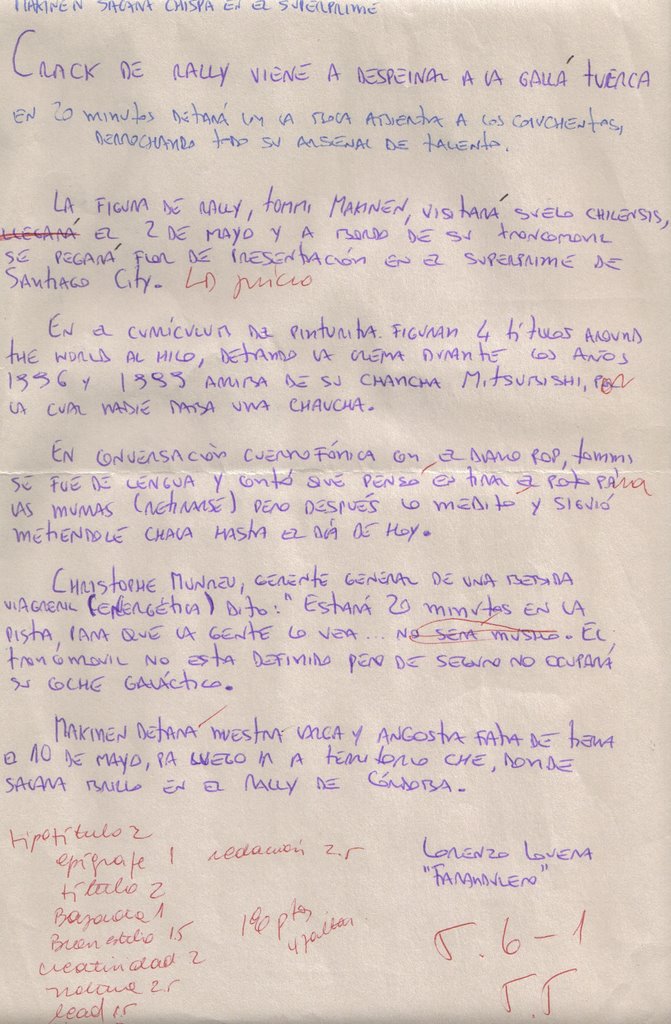 MAKINEN SACARA CHISPA EN EL SUPERPRIME
CRACK DE RALLY VIENE A DESPEINAL A LA GALLÁ TUERCA
EN 20 MINUTOS DEJARÁ CON LA BOCA ABIERTA A LOS CONCHENTOS,
DERROCHANDO TODO SU ARSENAL DE TALENTO.
LA FIGURA DE RALLY, TOMMI MAKINEN, VISITARÁ SUELO CHILENSIS,
LLEGARÁ EL 2 DE MAYO Y A BORDO DE SU TRONCOMOVIL
SE PEGARÁ FLOR DE PRESENTACIÓN EN EL SUPERPRIME DE
SANTIAGO CITY. LD juicio
EN EL CURRÍCULUM DEL PINTURITA FIGURAN 4 TÍTULOS AROUND
THE WORLD AL HILO, DEJANDO LA CREMA DURANTE LOS AÑOS
1996 Y 1999 ARRIBA DE SU CHANCHA MITSUBISHI, POR
LA CUAL NADIE DABA UNA CHAUCHA.
EN CONVERSACIÓN CUERNOFÓNICA CON EL DIARIO POP, TOMMI
SE FUE DE LENGUA Y CONTÓ QUE PENSO EN TIRAR EL POTO PARA
LAS MORAS (RETIRARSE) PERO DESPUÉS LO MEDITO Y SIGUIÓ
METIENDOLE CHALA HASTA EL DÍA DE HOY.
CHRISTOPHE MUNREU, GERENTE GENERAL DE UNA BEBIDA
VIAGRERIL (ENERGÉTICA) DIJO: "ESTARÁ 20 MINUTOS EN LA
PISTA, PARA QUE LA GENTE LO VEA... NO SERA MUSHO. EL
TRONOMOVIL NO ESTA DEFINIDO PERO DE SEGURO NO OCUPARÁ
SU COCHE GALÁCTICO.
MAKINEN DEJARÁ NUESTRA LARGA Y ANGOSTA FAJA DE TIERRA
EL 10 DE MAYO, PA LUEGO IR A TERRITORIO CHE, DONDE
SACARA BRILLO EN EL RALLY DE CÓRDOBA.
tipotítulo 2
epígrafe 1 redacción 2.5
título 2
Bajada 1
Buen estilo 1.5
creatividad 2
noticia 2.5
lead 1.5
4 faltas
LORENZO LOVERA
"FARANDULERO"
5.6-1
5.5